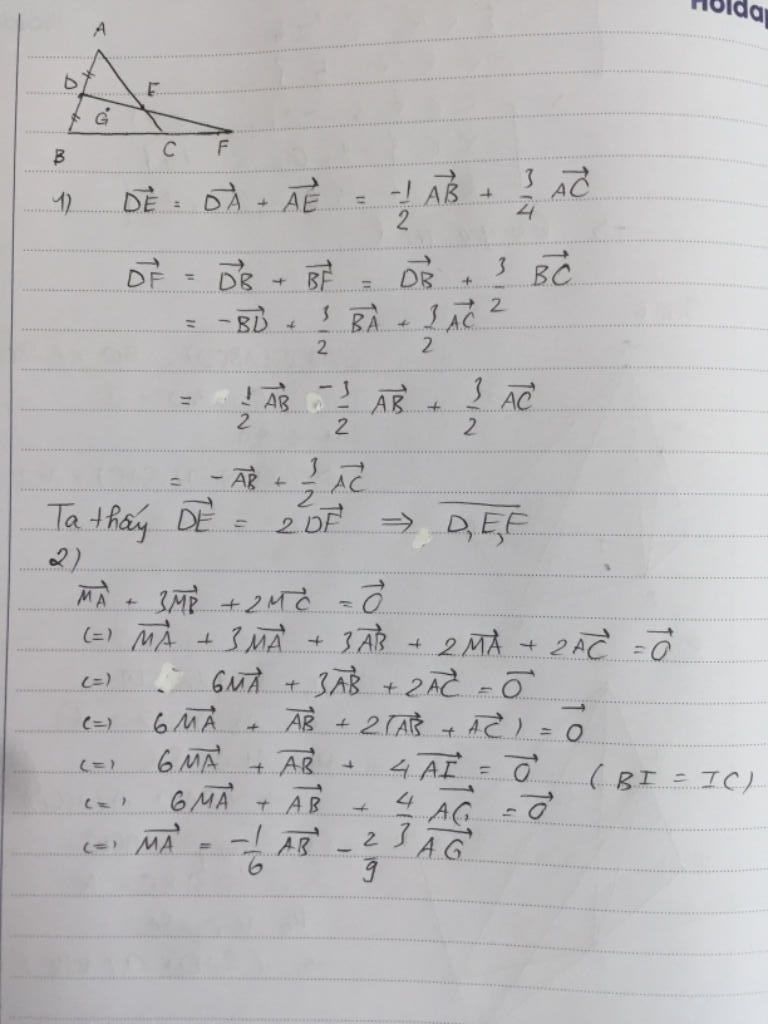 Holdap
A
D
E
G
B
C
F
1) $\overrightarrow{DE} = \overrightarrow{DA} + \overrightarrow{AE} = \frac{-1}{2}\overrightarrow{AB} + \frac{3}{4}\overrightarrow{AC}$
$\overrightarrow{DF} = \overrightarrow{DB} + \overrightarrow{BF} = \overrightarrow{DB} + \frac{3}{2}\overrightarrow{BC}$
$= -\overrightarrow{BD} + \frac{3}{2}\overrightarrow{BA} + \frac{3}{2}\overrightarrow{AC}$
$= \frac{1}{2}\overrightarrow{AB} - \frac{3}{2}\overrightarrow{AB} + \frac{3}{2}\overrightarrow{AC}$
$= -\overrightarrow{AB} + \frac{3}{2}\overrightarrow{AC}$
Ta thấy $\overrightarrow{DE} = 2\overrightarrow{DF} \Rightarrow \overline{D,E,F}$
2)
$\overrightarrow{MA} + 3\overrightarrow{MB} + 2\overrightarrow{MC} = \overrightarrow{0}$
(=) $\overrightarrow{MA} + 3\overrightarrow{MA} + 3\overrightarrow{AB} + 2\overrightarrow{MA} + 2\overrightarrow{AC} = \overrightarrow{0}$
(=) $6\overrightarrow{MA} + 3\overrightarrow{AB} + 2\overrightarrow{AC} = \overrightarrow{0}$
(=) $6\overrightarrow{MA} + \overrightarrow{AB} + 2(\overrightarrow{AB} + \overrightarrow{AC}) = \overrightarrow{0}$
(=) $6\overrightarrow{MA} + \overrightarrow{AB} + 4\overrightarrow{AI} = \overrightarrow{0}$ (BI = IC)
(=) $6\overrightarrow{MA} + \overrightarrow{AB} + \frac{4}{3}\overrightarrow{AG} = \overrightarrow{0}$
(=) $\overrightarrow{MA} = \frac{-1}{6}\overrightarrow{AB} - \frac{2}{9}\overrightarrow{AG}$